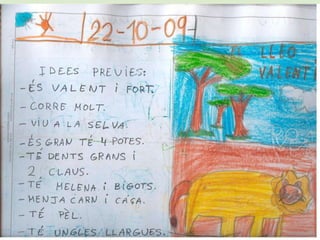 22-10-09
IDEES PREVIES:
- ÉS VALENT i FORT.
- CORRE MOLT.
- VIU A LA SELVA.
- ÉS GRAN TÉ 4 POTES.
- TÉ DENTS GRANS i
2 CLAUS.
- TÉ MELENA i BIGOTS.
- MENJA CARN i CAÇA.
- TÉ PÈL.
- TÉ UNGLES LLARGUES.
EL LLEÓ
VALENT